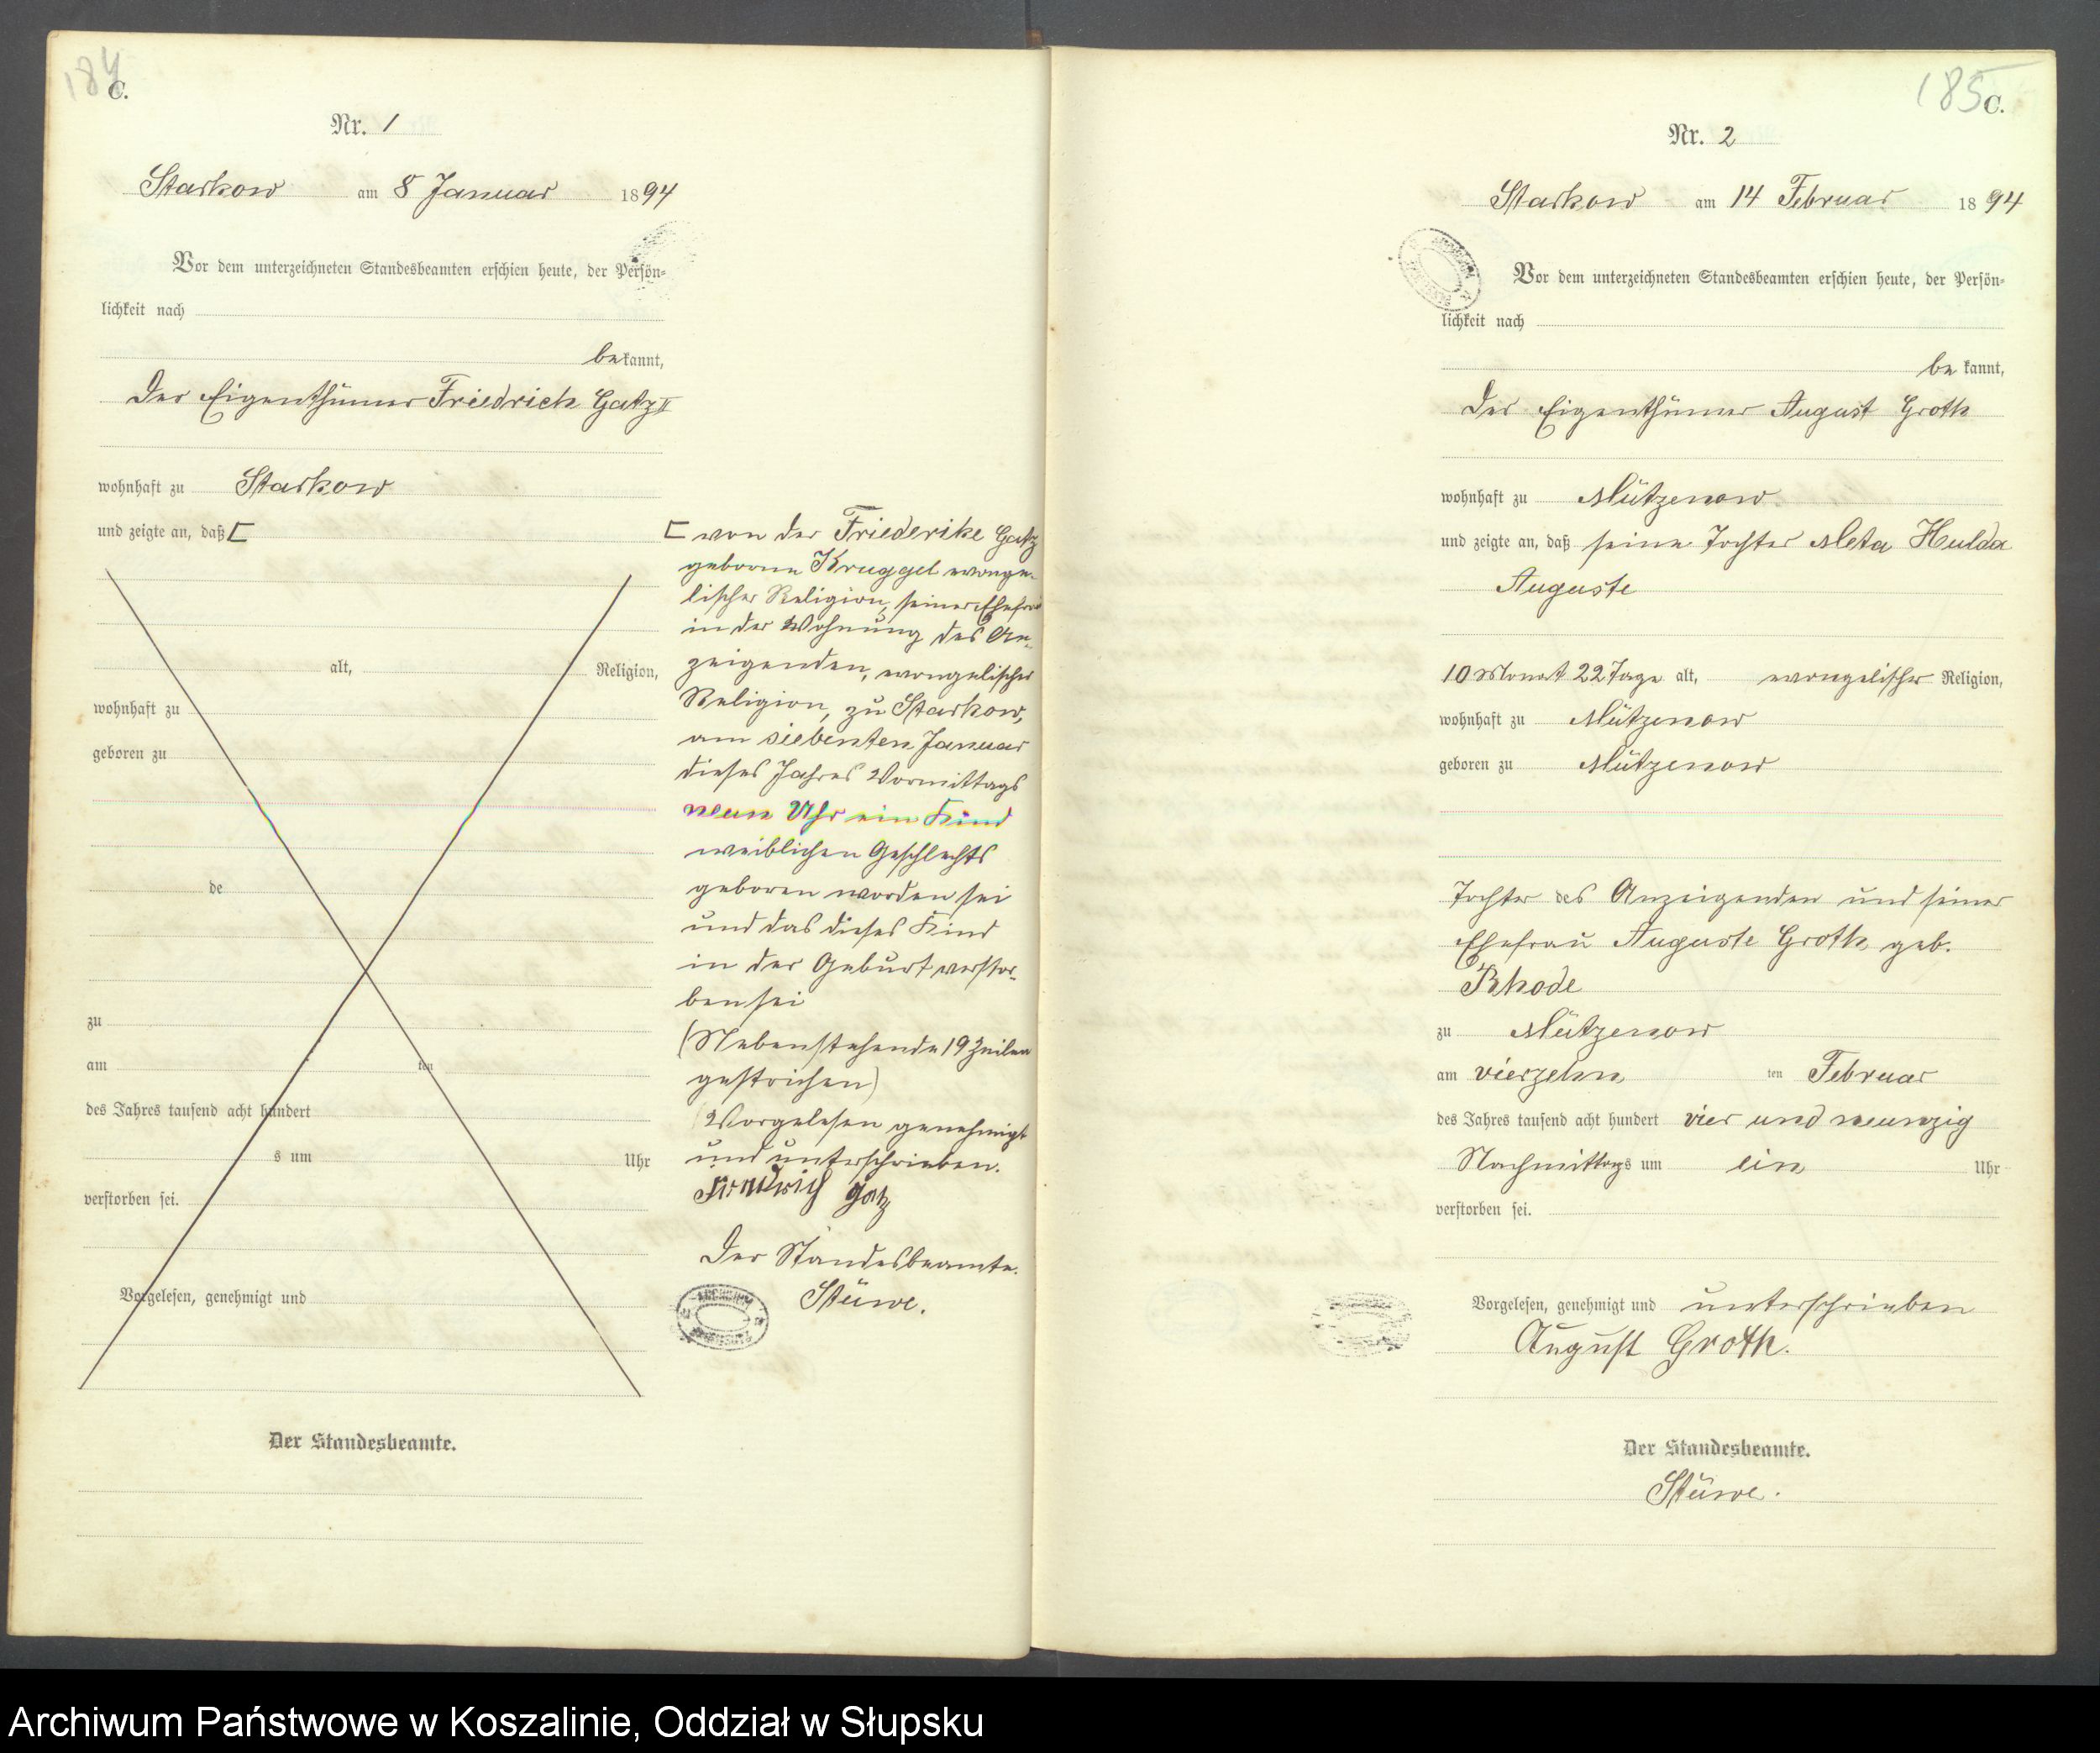 184
C.
Nr. 1
Starkow am 8 Januar 1894
Vor dem unterzeichneten Standesbeamten erschien heute, der Persön-
lichkeit nach
bekannt,
der Eigenthümer Friedrich Gatz II
wohnhaft zu Starkow
und zeigte an, daß [
alt, Religion,
wohnhaft zu
geboren zu
de
zu
am ten
des Jahres tausend acht hundert
s um Uhr
verstorben sei.
Vorgelesen, genehmigt und
Der Standesbeamte.
[ von der Friederike Gatz
geborne Kruggel evange-
lischer Religion, seiner Ehefrau
in der Wohnung des An-
zeigenden, evangelischer
Religion, zu Starkow,
am siebenten Januar
dieses Jahres Vormittags
neun Uhr ein Kind
weiblichen Geschlechts
geboren worden sei
und das dieses Kind
in der Geburt verstor-
ben sei
(Nebenstehende 19 Zeilen
gestrichen)
Vorgelesen genehmigt
und unterschrieben.
Friedrich Gatz
Der Standesbeamte.
Stüwe.
185
C.
Nr. 2
Starkow am 14 Februar 1894
Vor dem unterzeichneten Standesbeamten erschien heute, der Persön-
lichkeit nach
be kannt,
der Eigenthümer August Groth
wohnhaft zu Mützenow
und zeigte an, daß seine Tochter Meta Hulda
Auguste
10 Monat 22 Tage alt, evangelischer Religion,
wohnhaft zu Mützenow
geboren zu Mützenow
Tochter des Anzeigenden und seiner
Ehefrau Auguste Groth geb.
Rhode
zu Mützenow
am vierzehn ten Februar
des Jahres tausend acht hundert vier und neunzig
Nachmittags um ein Uhr
verstorben sei.
Vorgelesen, genehmigt und unterschrieben
August Groth.
Der Standesbeamte.
Stüwe.
Archiwum Państwowe w Koszalinie, Oddział w Słupsku